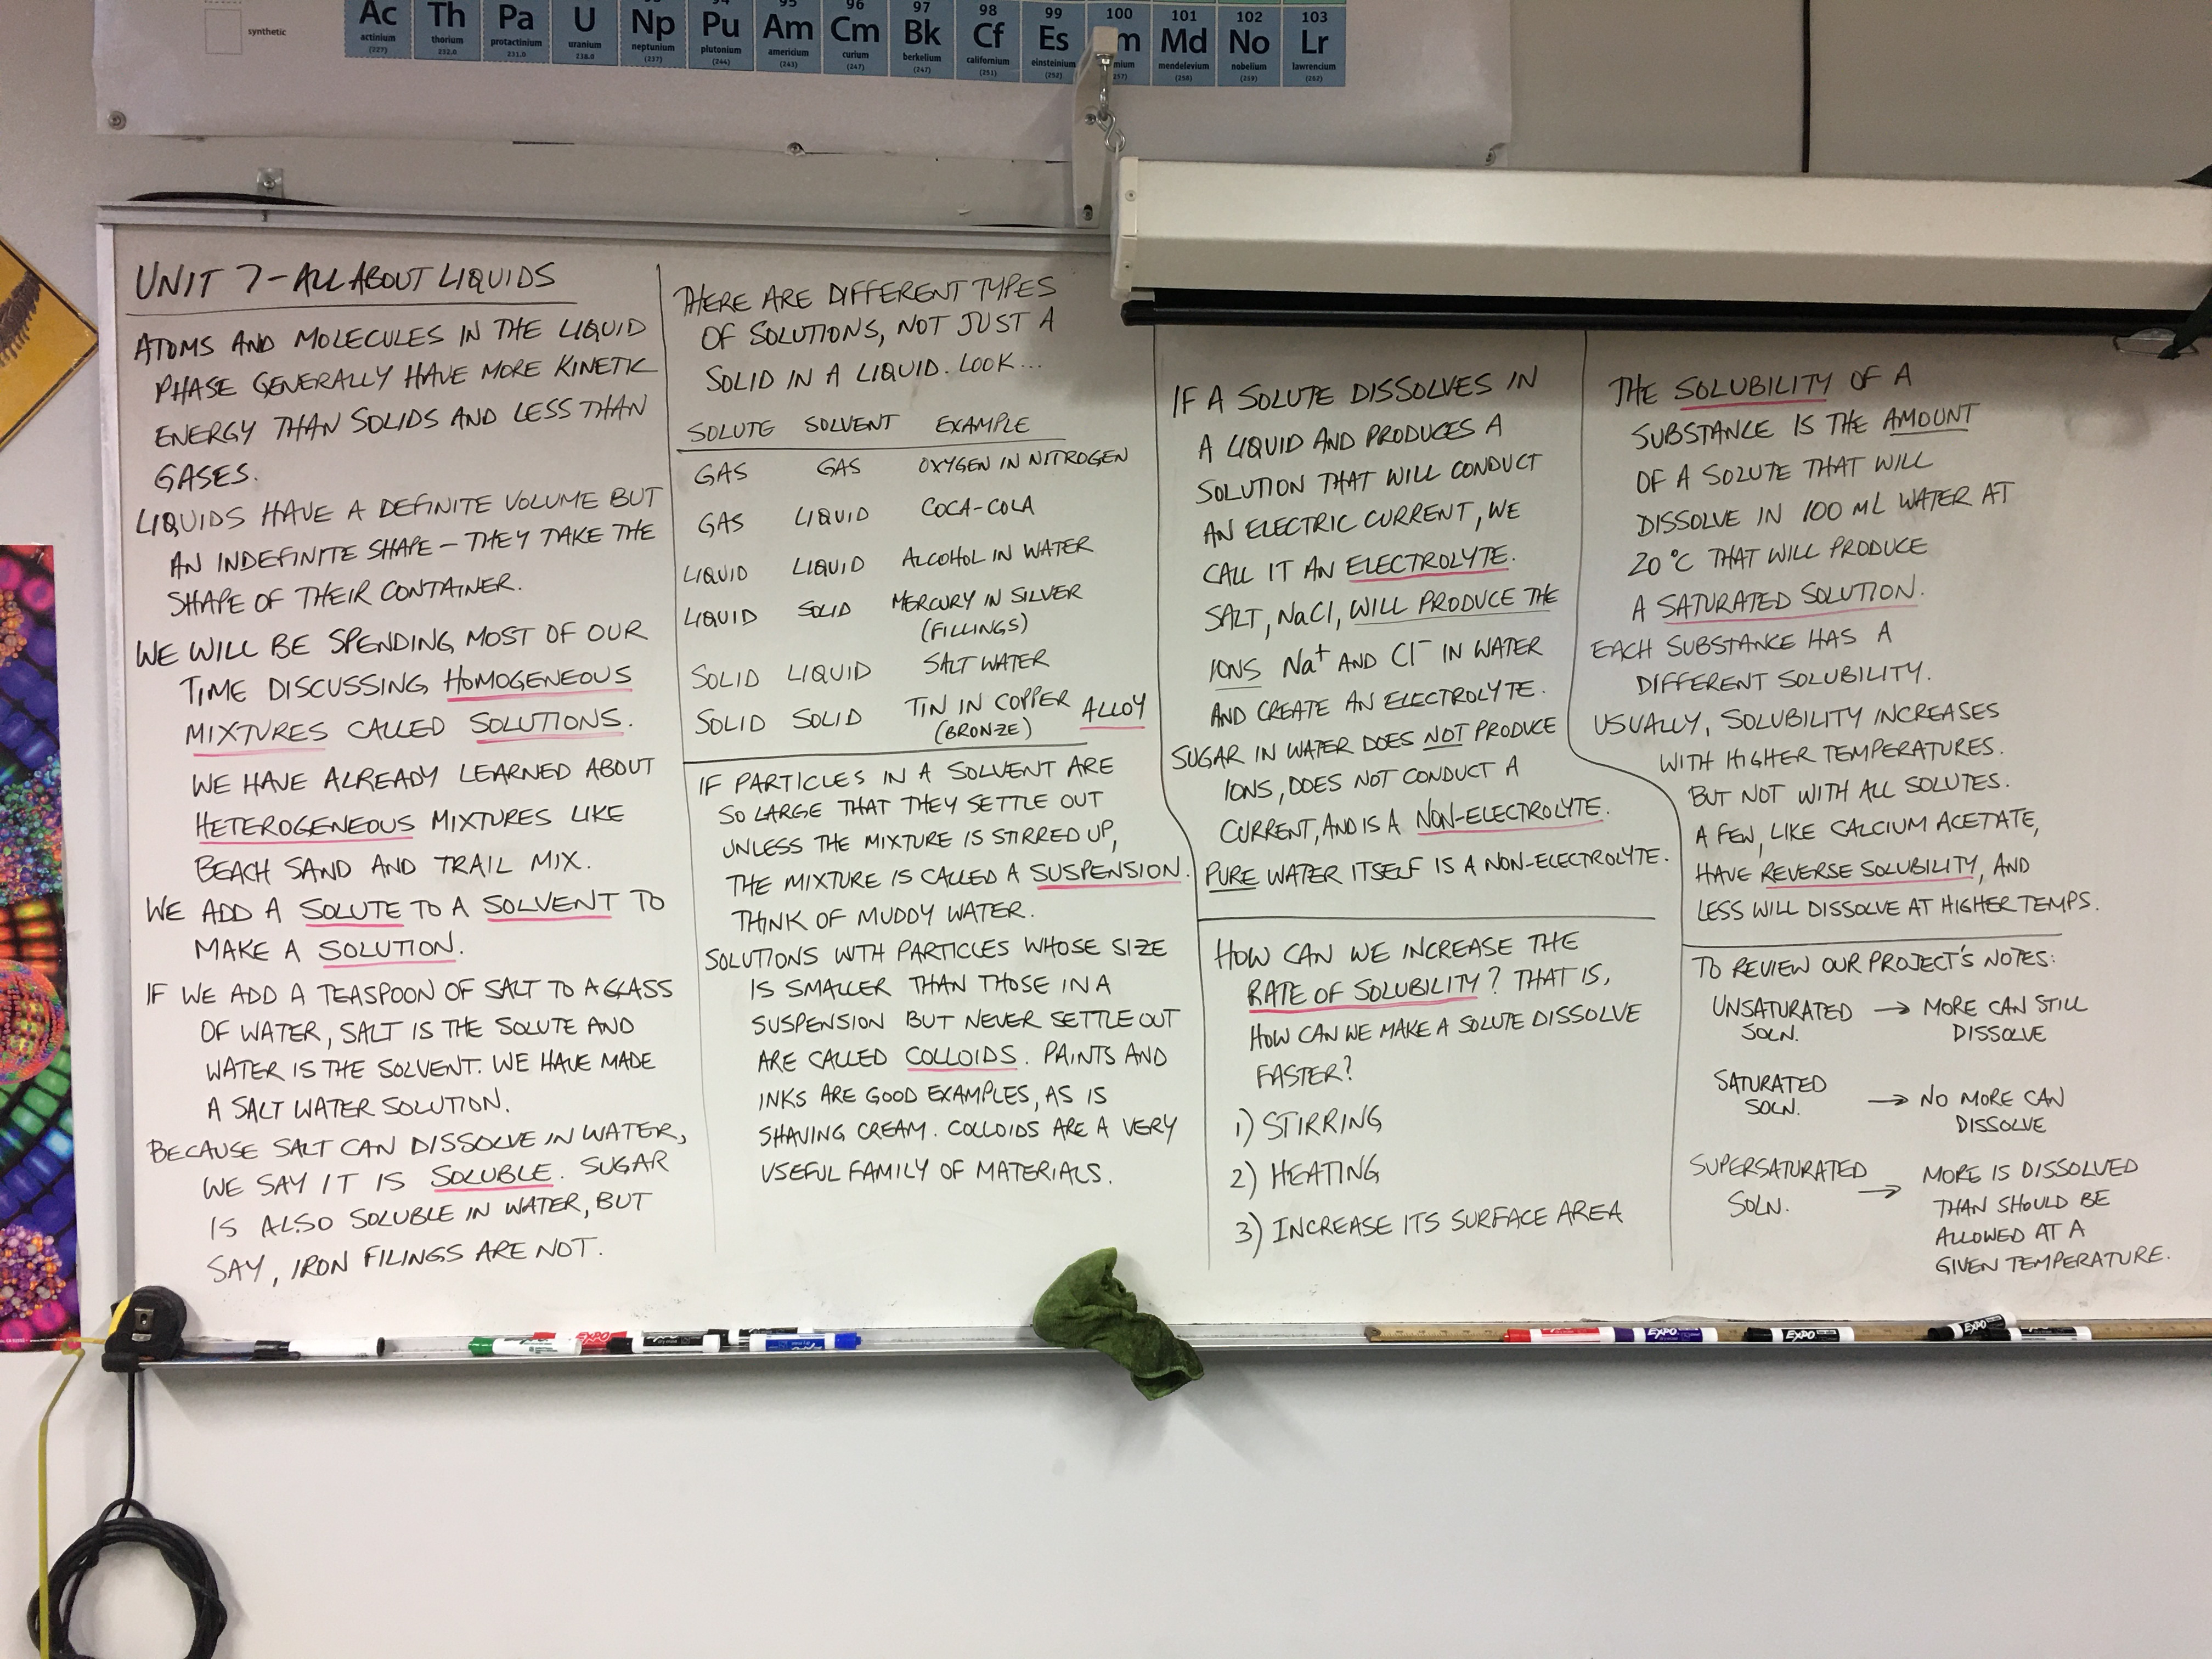 synthetic
Ac Th Pa U Np Pu Am Cm Bk Cf Es m Md No Lr
95 96 97 98 99 100 101 102 103
actinium thorium protactinium uranium neptunium plutonium americium curium berkelium californium einsteinium mium mendelevium nobelium lawrencium
(227) 232.0 231.0 238.0 (237) (244) (243) (247) (247) (251) (252) 257) (258) (259) (262)
UNIT 7 - ALL ABOUT LIQUIDS
ATOMS AND MOLECULES IN THE LIQUID
PHASE GENERALLY HAVE MORE KINETIC
ENERGY THAN SOLIDS AND LESS THAN
GASES.
LIQUIDS HAVE A DEFINITE VOLUME BUT
AN INDEFINITE SHAPE - THEY TAKE THE
SHAPE OF THEIR CONTAINER.
WE WILL BE SPENDING MOST OF OUR
TIME DISCUSSING HOMOGENEOUS
MIXTURES CALLED SOLUTIONS.
WE HAVE ALREADY LEARNED ABOUT
HETEROGENEOUS MIXTURES LIKE
BEACH SAND AND TRAIL MIX.
WE ADD A SOLUTE TO A SOLVENT TO
MAKE A SOLUTION.
IF WE ADD A TEASPOON OF SALT TO A GLASS
OF WATER, SALT IS THE SOLUTE AND
WATER IS THE SOLVENT. WE HAVE MADE
A SALT WATER SOLUTION.
BECAUSE SALT CAN DISSOLVE IN WATER,
WE SAY IT IS SOLUBLE. SUGAR
IS ALSO SOLUBLE IN WATER, BUT
SAY, IRON FILINGS ARE NOT.
THERE ARE DIFFERENT TYPES
OF SOLUTIONS, NOT JUST A
SOLID IN A LIQUID. LOOK...
SOLUTE SOLVENT EXAMPLE
GAS GAS OXYGEN IN NITROGEN
GAS LIQUID COCA-COLA
LIQUID LIQUID ALCOHOL IN WATER
LIQUID SOLID MERCURY IN SILVER
(FILLINGS)
SOLID LIQUID SALT WATER
SOLID SOLID TIN IN COPPER ALLOY
(BRONZE)
IF PARTICLES IN A SOLVENT ARE
SO LARGE THAT THEY SETTLE OUT
UNLESS THE MIXTURE IS STIRRED UP,
THE MIXTURE IS CALLED A SUSPENSION.
THINK OF MUDDY WATER.
SOLUTIONS WITH PARTICLES WHOSE SIZE
IS SMALLER THAN THOSE IN A
SUSPENSION BUT NEVER SETTLE OUT
ARE CALLED COLLOIDS. PAINTS AND
INKS ARE GOOD EXAMPLES, AS IS
SHAVING CREAM. COLLOIDS ARE A VERY
USEFUL FAMILY OF MATERIALS.
IF A SOLUTE DISSOLVES IN
A LIQUID AND PRODUCES A
SOLUTION THAT WILL CONDUCT
AN ELECTRIC CURRENT, WE
CALL IT AN ELECTROLYTE.
SALT, NaCl, WILL PRODUCE THE
IONS Na⁺ AND Cl⁻ IN WATER
AND CREATE AN ELECTROLYTE.
SUGAR IN WATER DOES NOT PRODUCE
IONS, DOES NOT CONDUCT A
CURRENT, AND IS A NON-ELECTROLYTE.
PURE WATER ITSELF IS A NON-ELECTROLYTE.
HOW CAN WE INCREASE THE
RATE OF SOLUBILITY? THAT IS,
HOW CAN WE MAKE A SOLUTE DISSOLVE
FASTER?
1) STIRRING
2) HEATING
3) INCREASE ITS SURFACE AREA
THE SOLUBILITY OF A
SUBSTANCE IS THE AMOUNT
OF A SOLUTE THAT WILL
DISSOLVE IN 100 ML WATER AT
20 °C THAT WILL PRODUCE
A SATURATED SOLUTION.
EACH SUBSTANCE HAS A
DIFFERENT SOLUBILITY.
USUALLY, SOLUBILITY INCREASES
WITH HIGHER TEMPERATURES.
BUT NOT WITH ALL SOLUTES.
A FEW, LIKE CALCIUM ACETATE,
HAVE REVERSE SOLUBILITY, AND
LESS WILL DISSOLVE AT HIGHER TEMPS.
TO REVIEW OUR PROJECT'S NOTES:
UNSATURATED → MORE CAN STILL
SOLN. DISSOLVE
SATURATED
SOLN. → NO MORE CAN
DISSOLVE
SUPERSATURATED → MORE IS DISSOLVED
SOLN. THAN SHOULD BE
ALLOWED AT A
GIVEN TEMPERATURE.
EXPO
EXPO
EXPO
EXPO